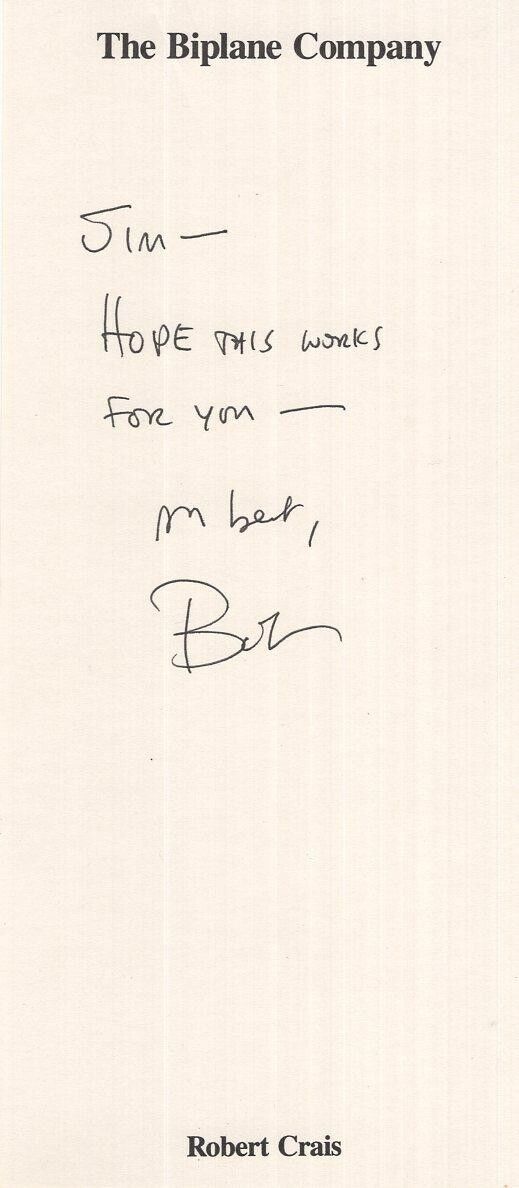 The Biplane Company
Jim —
HOPE THIS WORKS
FOR YOU —
My best,
Bob
Robert Crais